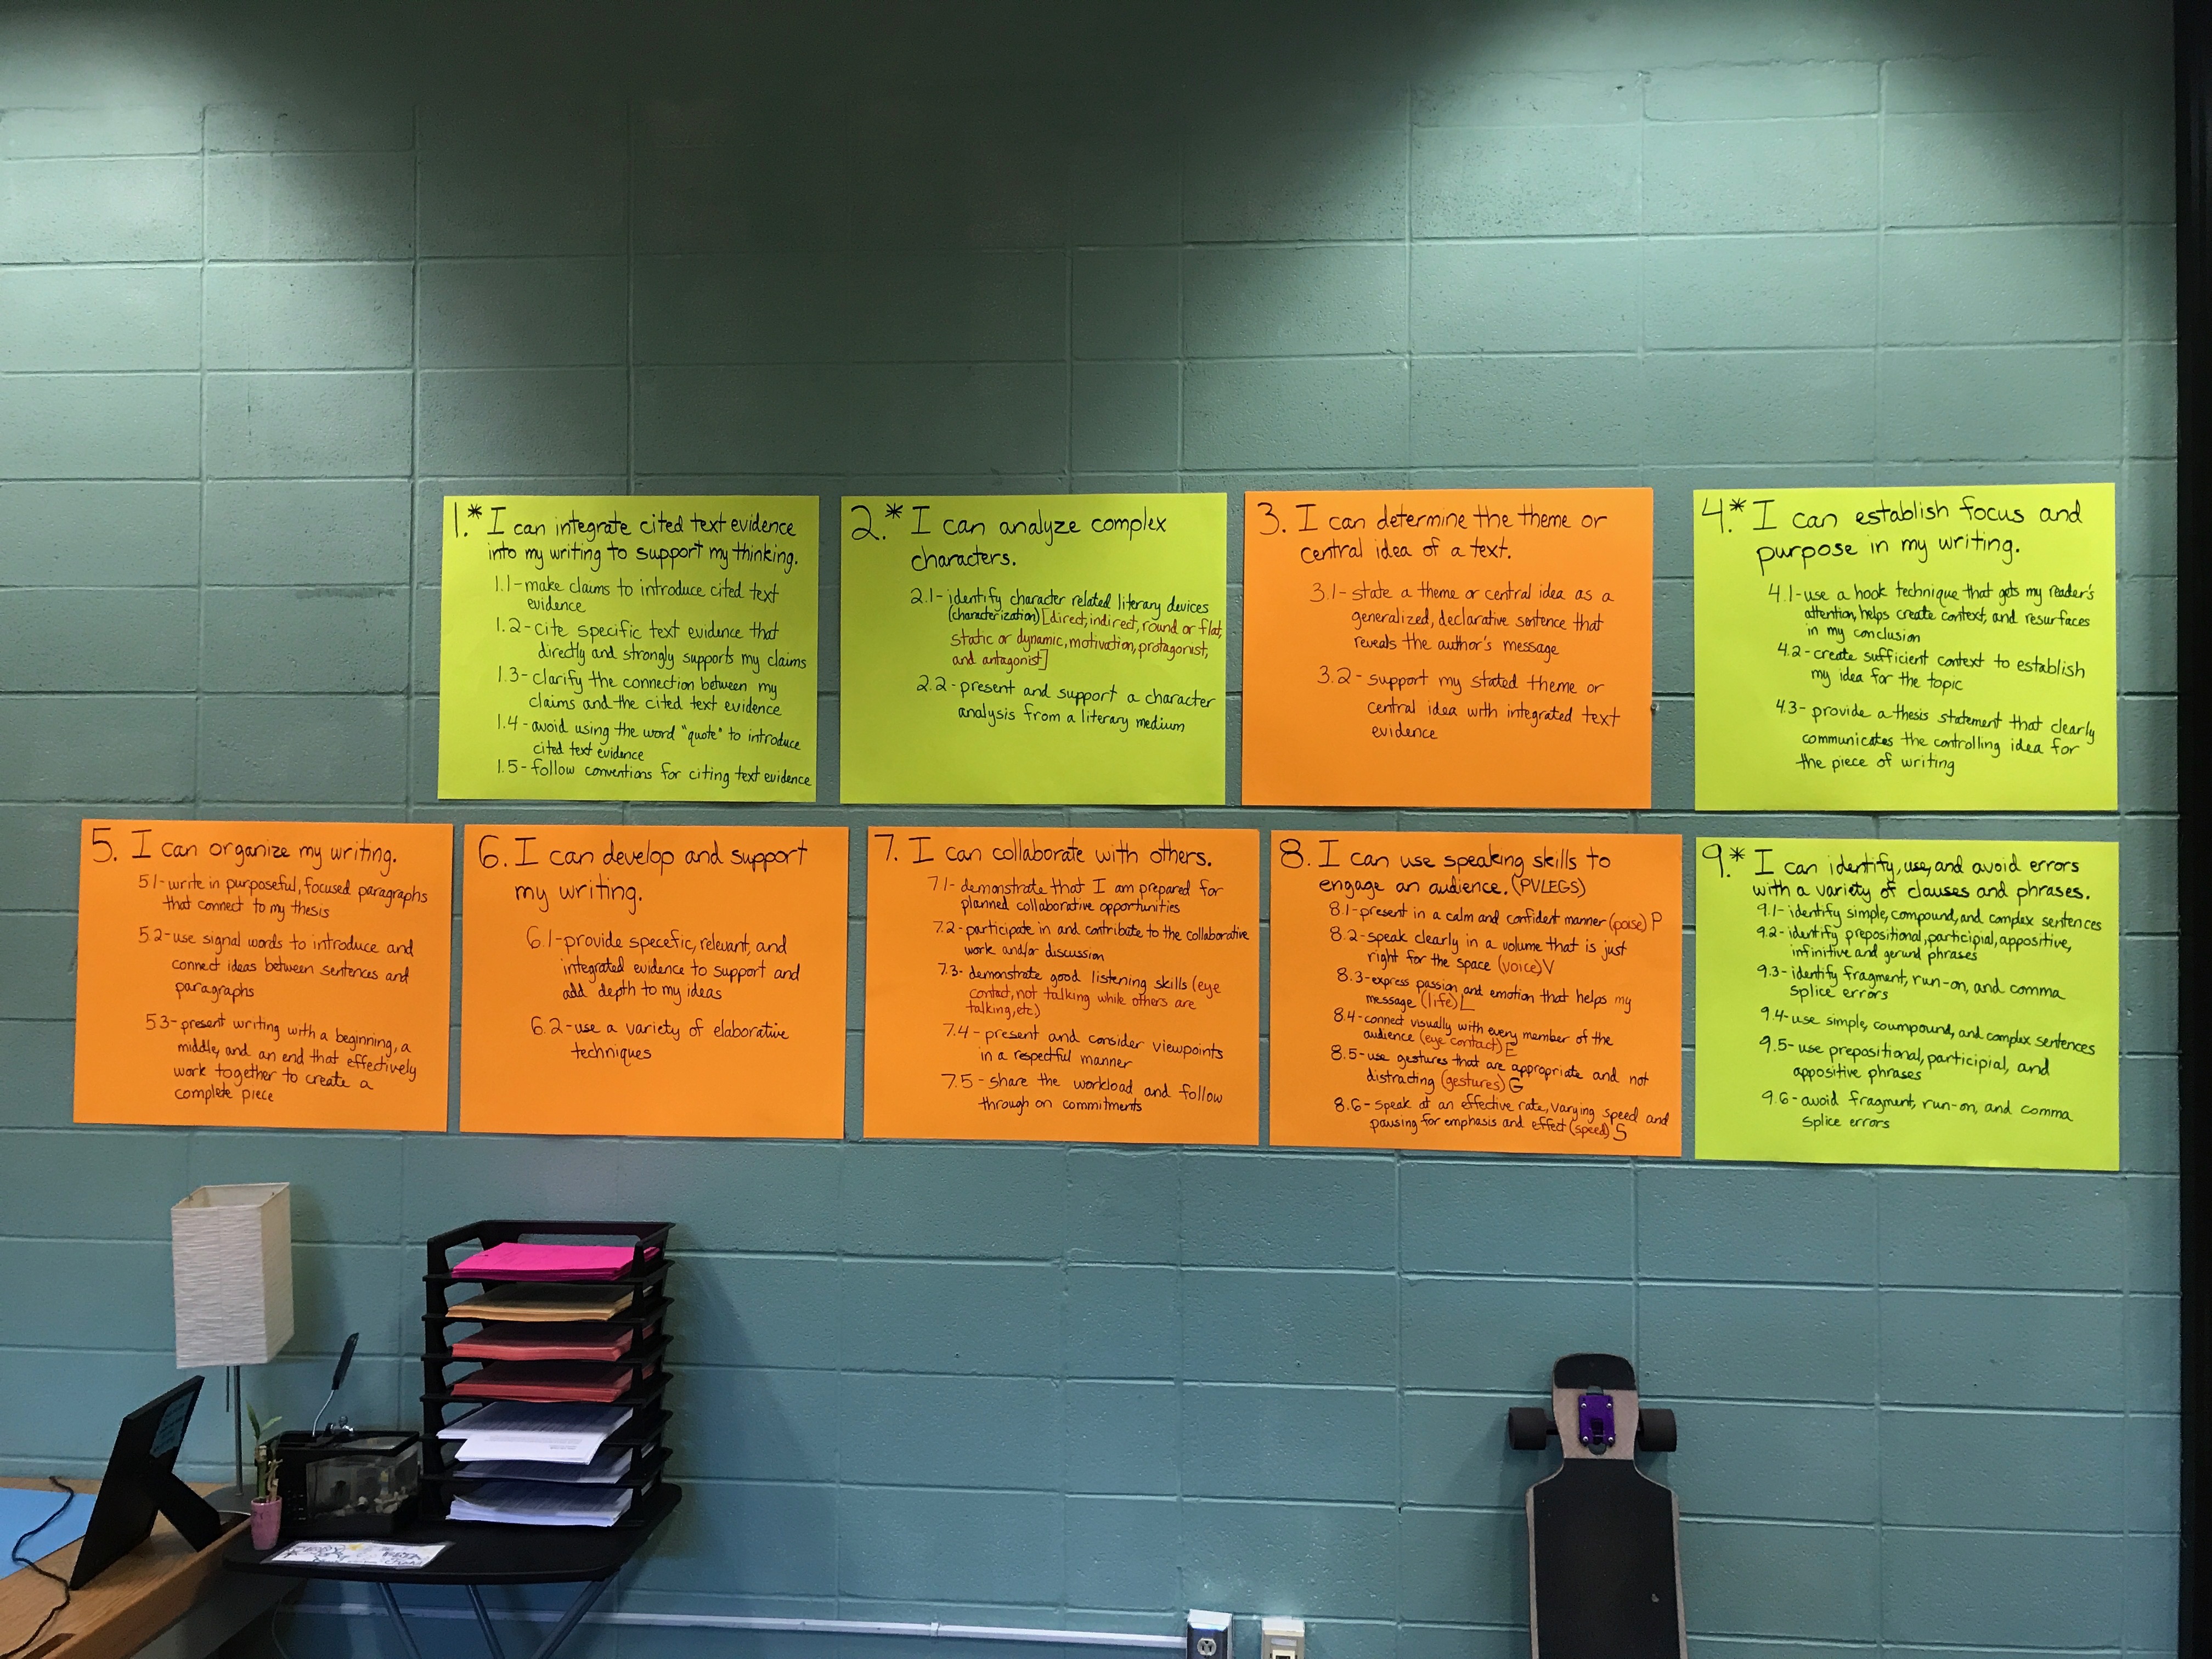 1.* I can integrate cited text evidence
into my writing to support my thinking.
1.1-make claims to introduce cited text
evidence
1.2-cite specific text evidence that
directly and strongly supports my claims
1.3-clarify the connection between my
claims and the cited text evidence
1.4-avoid using the word "quote" to introduce
cited text evidence
1.5-follow conventions for citing text evidence
2.* I can analyze complex
characters.
2.1-identify character related literary devices
(characterization)[direct, indirect, round or flat,
static or dynamic, motivation, protagonist,
and antagonist]
2.2-present and support a character
analysis from a literary medium
3. I can determine the theme or
central idea of a text.
3.1-state a theme or central idea as a
generalized, declarative sentence that
reveals the author's message
3.2-support my stated theme or
central idea with integrated text
evidence
4.* I can establish focus and
purpose in my writing.
4.1-use a hook technique that gets my reader's
attention, helps create context, and resurfaces
in my conclusion
4.2-create sufficient context to establish
my idea for the topic
4.3-provide a thesis statement that clearly
communicates the controlling idea for
the piece of writing
5. I can organize my writing.
5.1-write in purposeful, focused paragraphs
that connect to my thesis
5.2-use signal words to introduce and
connect ideas between sentences and
paragraphs
5.3-present writing with a beginning, a
middle, and an end that effectively
work together to create a
complete piece
6. I can develop and support
my writing.
6.1-provide specefic, relevant, and
integrated evidence to support and
add depth to my ideas
6.2-use a variety of elaborative
techniques
7. I can collaborate with others.
7.1-demonstrate that I am prepared for
planned collaborative opportunities
7.2-participate in and contribute to the collaborative
work and/or discussion
7.3-demonstrate good listening skills (eye
contact, not talking while others are
talking, etc.)
7.4-present and consider viewpoints
in a respectful manner
7.5-share the workload and follow
through on commitments
8. I can use speaking skills to
engage an audience. (PVLEGS)
8.1-present in a calm and confident manner (poise) P
8.2-speak clearly in a volume that is just
right for the space (voice) V
8.3-express passion and emotion that helps my
message (life) L
8.4-connect visually with every member of the
audience (eye contact) E
8.5-use gestures that are appropriate and not
distracting (gestures) G
8.6-speak at an effective rate, varying speed and
pausing for emphasis and effect (speed) S
9.* I can identify, use, and avoid errors
with a variety of clauses and phrases.
9.1-identify simple, compound, and complex sentences
9.2-identify prepositional, participial, appositive,
infinitive and gerund phrases
9.3-identify fragment, run-on, and comma
splice errors
9.4-use simple, coumpound, and complex sentences
9.5-use prepositional, participial, and
appositive phrases
9.6-avoid fragment, run-on, and comma
splice errors